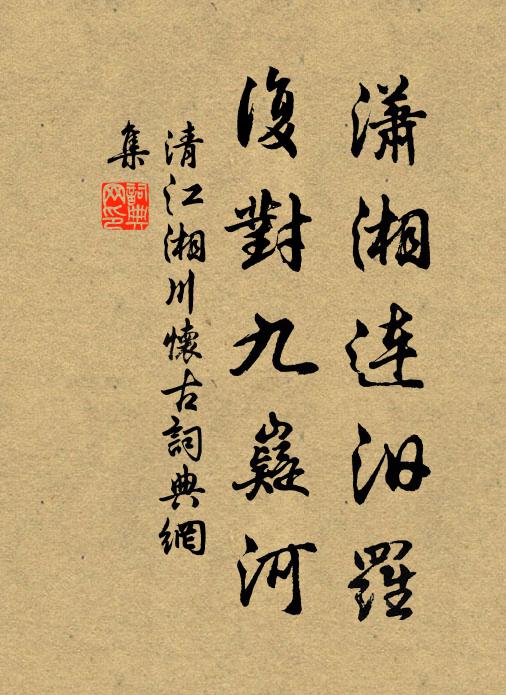 瀟湘連汨羅
復對九嶷河
清江湘川懷古詞典網
集
詞典網印